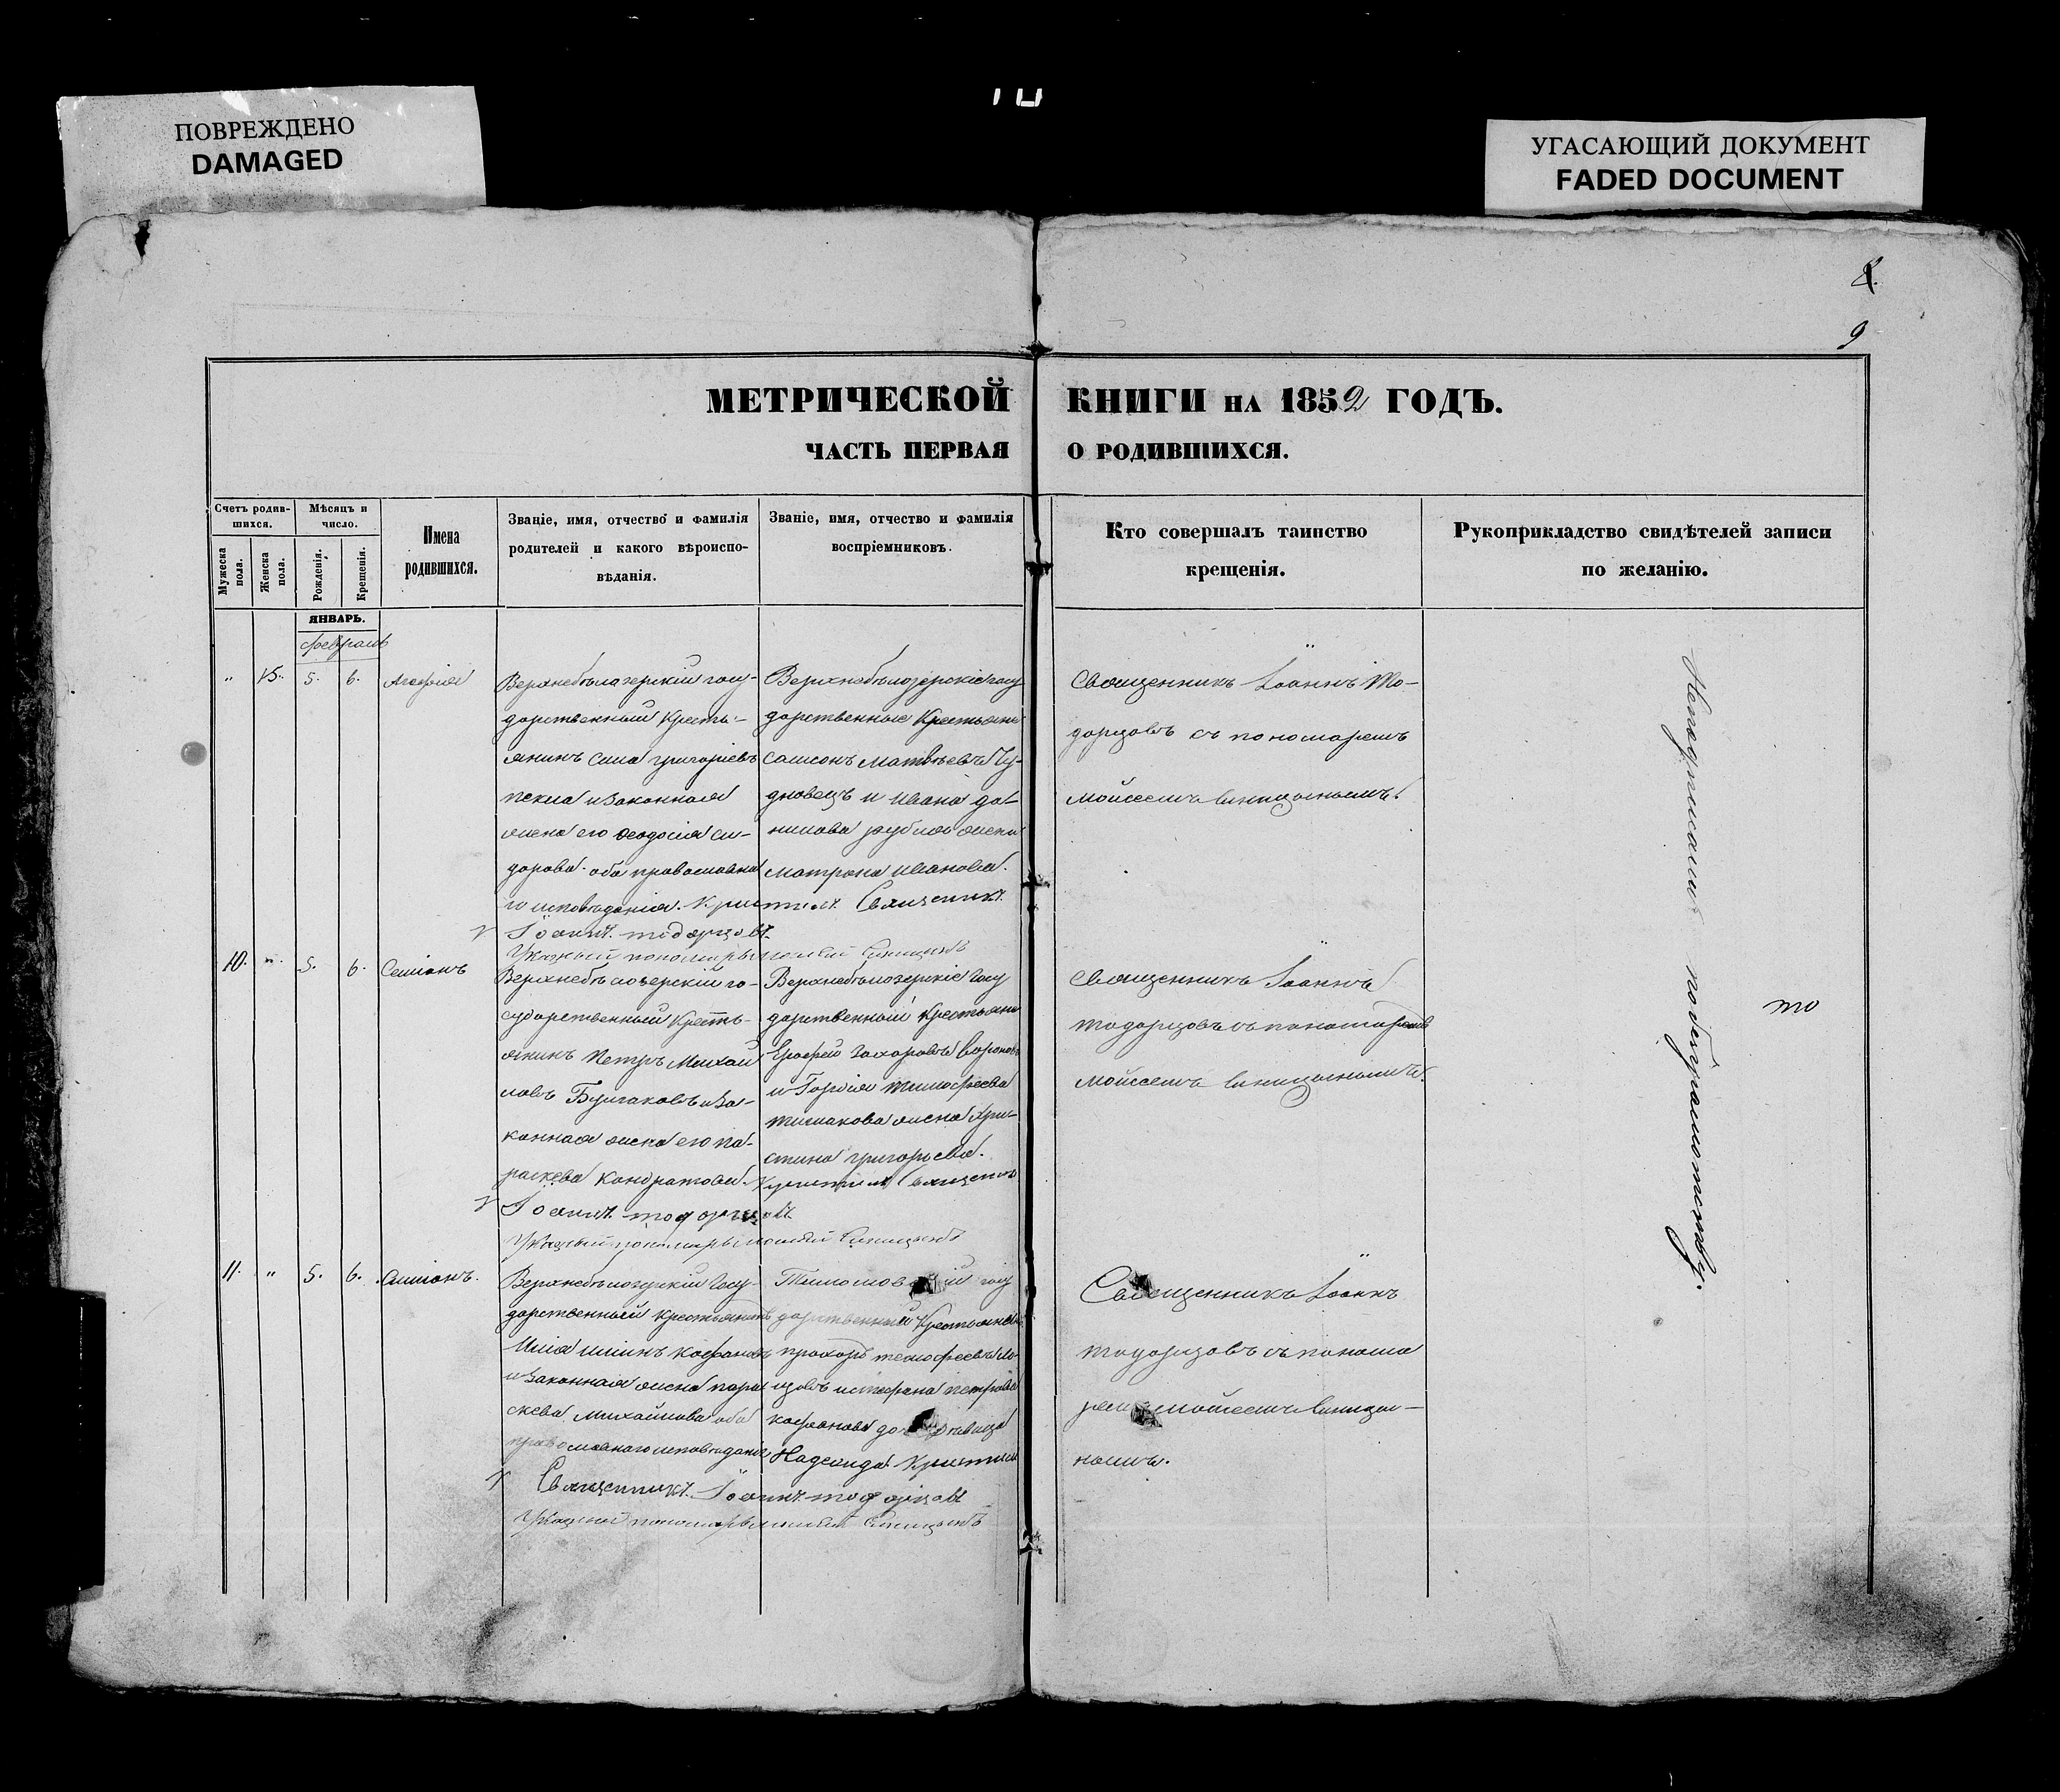 ПОВРЕЖДЕНО
DAMAGED
УГАСАЮЩИЙ ДОКУМЕНТ
FADED DOCUMENT
8.
9
МЕТРИЧЕСКОЙ КНИГИ НА 1852 ГОДЪ.
ЧАСТЬ ПЕРВАЯ О РОДИВШИХСЯ.
Счетъ родив-
шихся.
Мужеска
пола.
Женска
пола.
Мѣсяцъ и
число.
Рожденія.
Крещенія.
Имена
родившихся.
Званіе, имя, отчество и фамилія
родителей и какого вѣроиспо-
вѣданія.
Званіе, имя, отчество и фамилія
воспріемниковъ.
Кто совершалъ таинство
крещенія.
Рукоприкладство свидѣтелей записи
по желанію.
ЯНВАРЬ.
февраль
" 15. 5. 6. Агафія
Верхнебѣлозерскій госу-
дарственный Кресть-
янинъ Сила григоріевъ
и законная
жена его Феодосія си-
дорова оба православна
го исповѣданія.
Верхнебѣлозерскіе госу
дарственные Крестьяни
самсонъ матвѣевъ Чу-
дновецъ и ивана да-
нилова жена
матрона иванова.
Крестилъ Священникъ
Іоаннъ тодорцовъ
Указный пономарь моисей Синицынъ
Священникъ Іоаннъ То-
дорцовъ съ пономаремъ
моисеемъ Синицынымъ.
10. " 5. 6. Симіонъ
Верхнебѣлозерскій го-
сударственный Кресть-
янинъ Петръ Михаи
ловъ Булгаковъ и за-
конная жена его па-
раскева Кондратова.
Верхнебѣлозерскіе госу
дарственный Крестьяни
Ерофей Захаровъ
и Гордія тимофеева
жена Хри-
стина григорьева.
Крестилъ Священникъ
Іоаннъ тодорцовъ
Указный пономарь моисей Синицынъ
Священникъ Іоаннъ
тодорцовъ съ пономаремъ
моисеемъ Синицынымъ.
11. " 5. 6. Симіонъ.
Верхнебѣлозерскій госу
дарственный крестьянинъ
Илія илiинъ Кафановъ
и законная жена пара
скева Михайлова оба
православнаго исповѣданія
госу
дарственный Крестьянинъ
прохоръ
и стефана петрова
кафанова до девица
Надежда. Крестилъ
Священникъ Іоаннъ тодорцовъ
Указный пономарь моисей Синицынъ
Священникъ Іоаннъ
тодорцовъ съ понома
ремъ моисеемъ Синицы-
нымъ.
Неподписали по безграмотству.
то